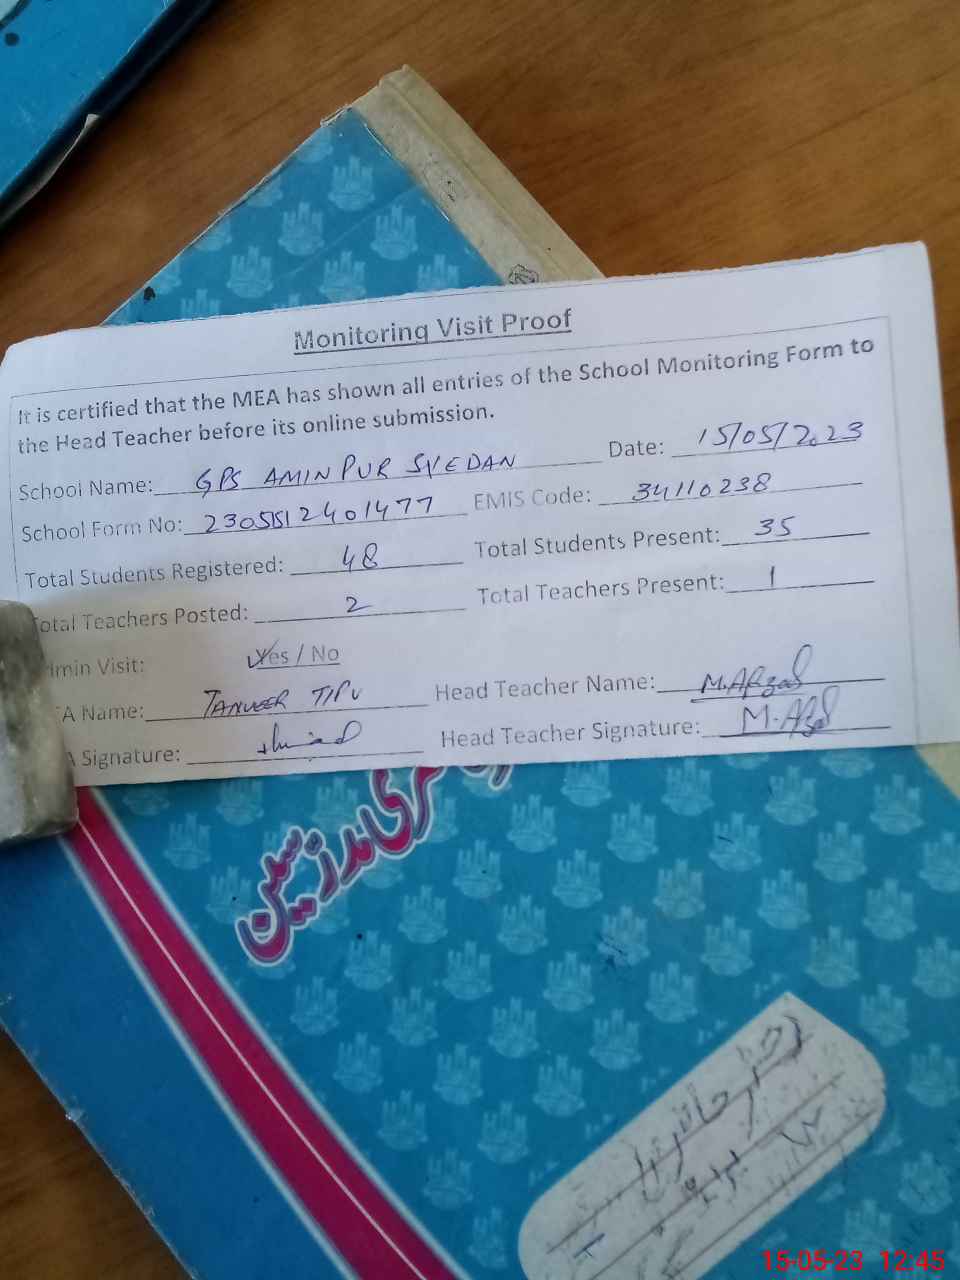 Monitoring Visit Proof
It is certified that the MEA has shown all entries of the School Monitoring Form to
the Head Teacher before its online submission.
School Name: GPS AMIN PUR SYEDAN Date: 15/05/2023
School Form No: 23051512401477 EMIS Code: 34110238
Total Students Registered: 48 Total Students Present: 35
otal Teachers Posted: 2 Total Teachers Present: 1
min Visit: Yes / No
A Name: TANVEER TIPU Head Teacher Name: M.Afzal
Signature: Head Teacher Signature: M.Afzal
رجسٹر حاضری
15-05-23 12:45